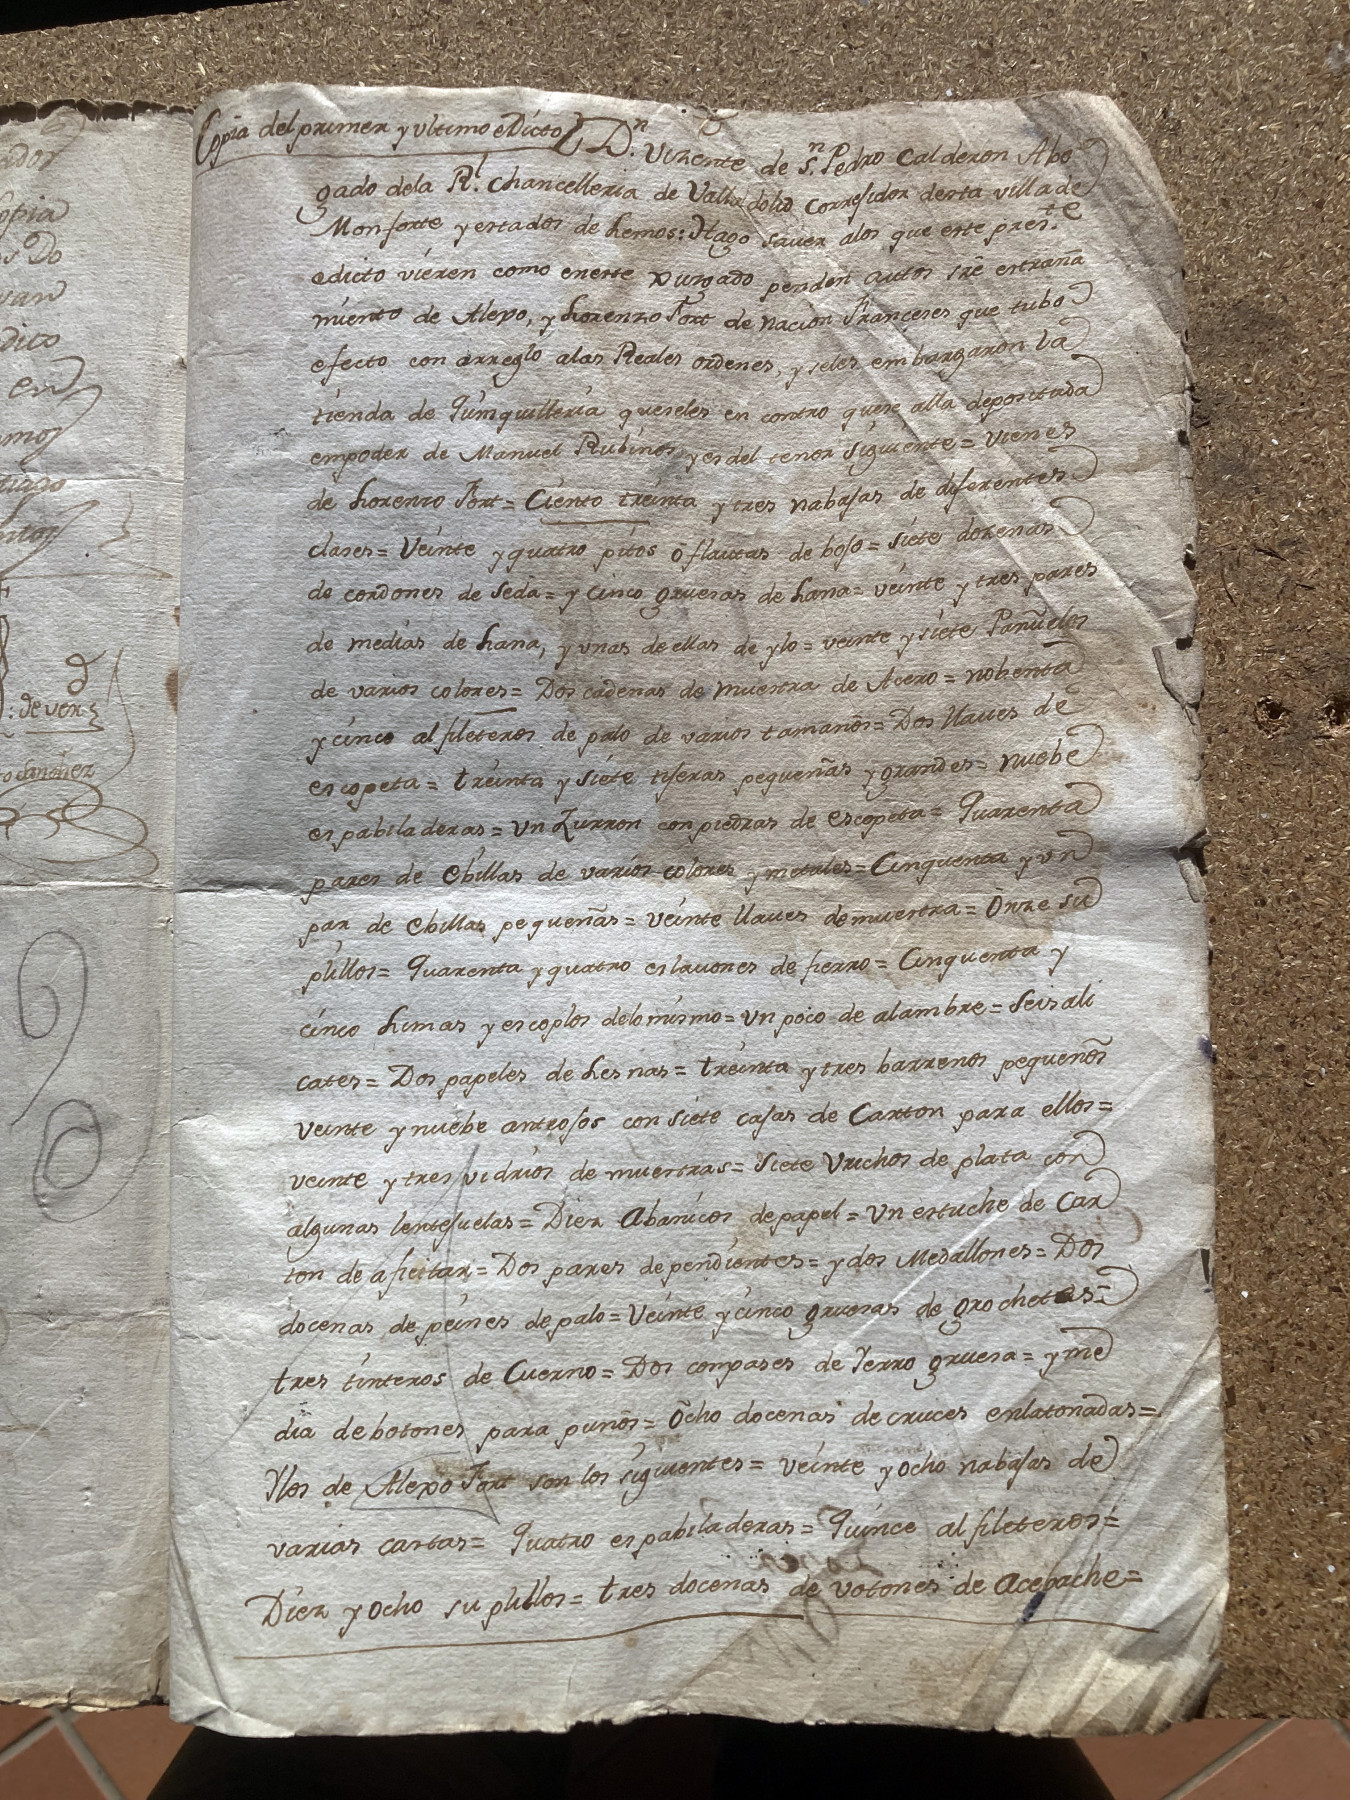 Copia del primer y ultimo eDicto} Dn. Vizente de Sn. Pedro Calderon Abo
gado dela Rl. Chancelleria de Valladolid Corregidor desta villa de
Monforte y estados de Lemos: Hago saver alos que este preste
edicto vieren como eneste Jurgado penden autos sre estraña
miento de Alexo, y Lorenzo Fort de nacion Franceses que tubo
efecto con arreglo alas Reales ordenes, y seles embargaron la
tienda de Quinquilleria queseles en contro quese alla depositada
empoder de Manuel Rubinos y es del tenor siguiente = Vienes
de Lorenzo Fort = Ciento treinta y tres nabajas de diferentes
clases = Veinte y quatro pitos o flautas de bojo = siete dozenas
de cordones de Seda = y cinco gruesas de Lana = veinte y tres pares
de medias de Lana, y unas de ellas de ylo = veinte y siete Pañuelos
de varios colores = Dos cadenas de muestra de Acero = nobenta
y cinco alfileteros de palo de varios tamaños = Dos llaves de
escopeta = treinta y siete tijeras pequeñas y grandes = nuebe
espabiladeras = Vn Zurron con piedras de escopeta = Quarenta
pares de Ebillas de varios colores y metales = Cinquenta y un
par de Ebillas pequeñas = veinte llaves de muestra = Onze su
plillos = Quarenta y quatro eslavones de fierro = Cinquenta y
cinco Limas y escoplos delo mismo = Vn poco de alambre = Seis ali
cates = Dos papeles de Lesnas = treinta y tres barrenos pequeños
veinte y nuebe antrojos con siete cajas de Carton para ellos =
veinte y tres vidrios de muestras = Siete Vrichos de plata con
algunas lentejuelas = Diez Abanicos de papel = Vn estuche de Car
ton de afeitar = Dos pares de pendientes = y dos Medallones = Dos
docenas de peines de palo = Veinte y cinco gruesas de grochetas =
tres tinteros de Cuerno = Dos compases de Yerro gruesa = y me
dia de botones para puños = Ocho docenas de cruces enlatonadas =
Ylos de Alexo Fort son los siguientes = veinte y ocho nabajas de
varias castas = Quatro espabiladeras = Quince alfileteros =
Diez y ocho suplillos = tres docenas de votones de Acebache =
opia
Do
van
dito
en
amos
devera
Sanchez